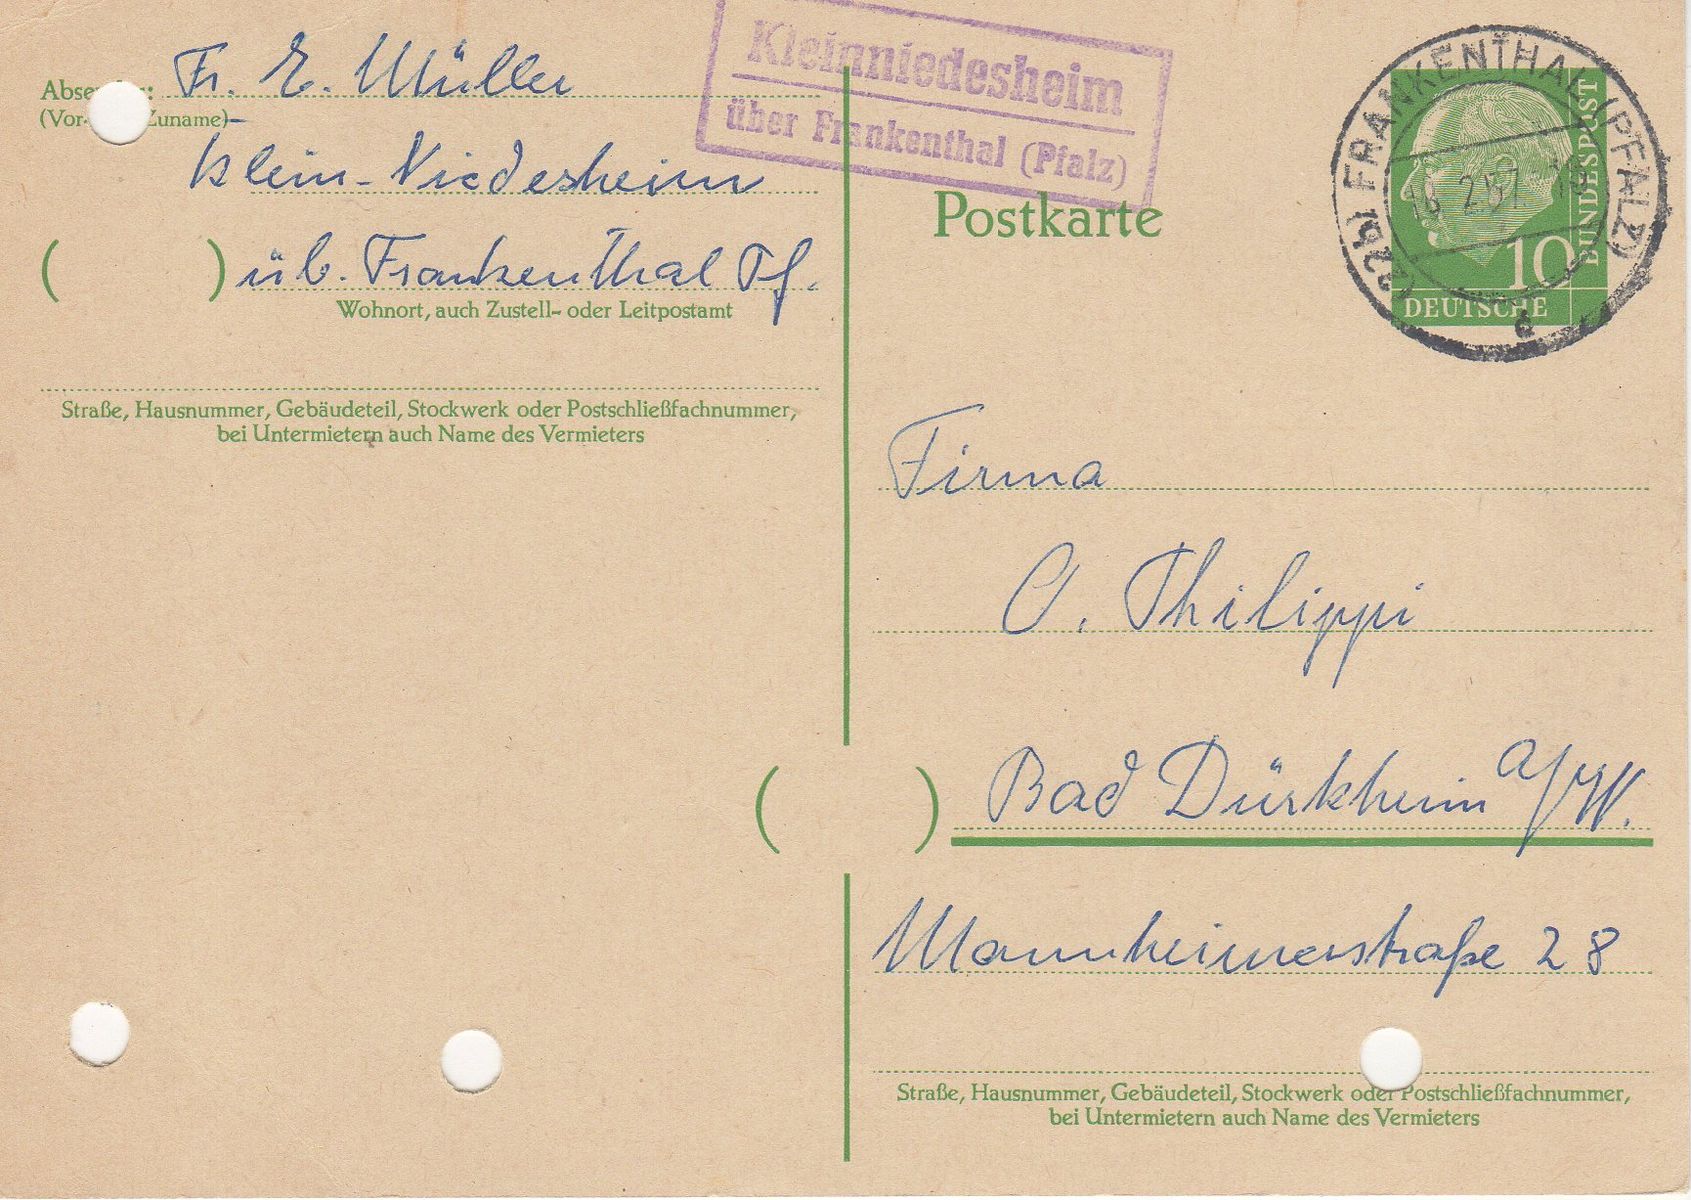 Fr. E. Müller
(Vor- Zuname)
Klein-Niedesheim
( ) üb. Frankenthal Pf.
Wohnort, auch Zustell- oder Leitpostamt
Straße, Hausnummer, Gebäudeteil, Stockwerk oder Postschließfachnummer,
bei Untermietern auch Name des Vermieters
Kleinniedesheim
über Frankenthal (Pfalz)
Postkarte
(22b) FRANKENTHAL (PFALZ)
2.57
d
10
DEUTSCHE
BUNDESPOST
Firma
O. Philippi
( ) Bad Dürkheim a/W.
Mannheimerstraße 28
Straße, Hausnummer, Gebäudeteil, Stockwerk oder Postschließfachnummer,
bei Untermietern auch Name des Vermieters